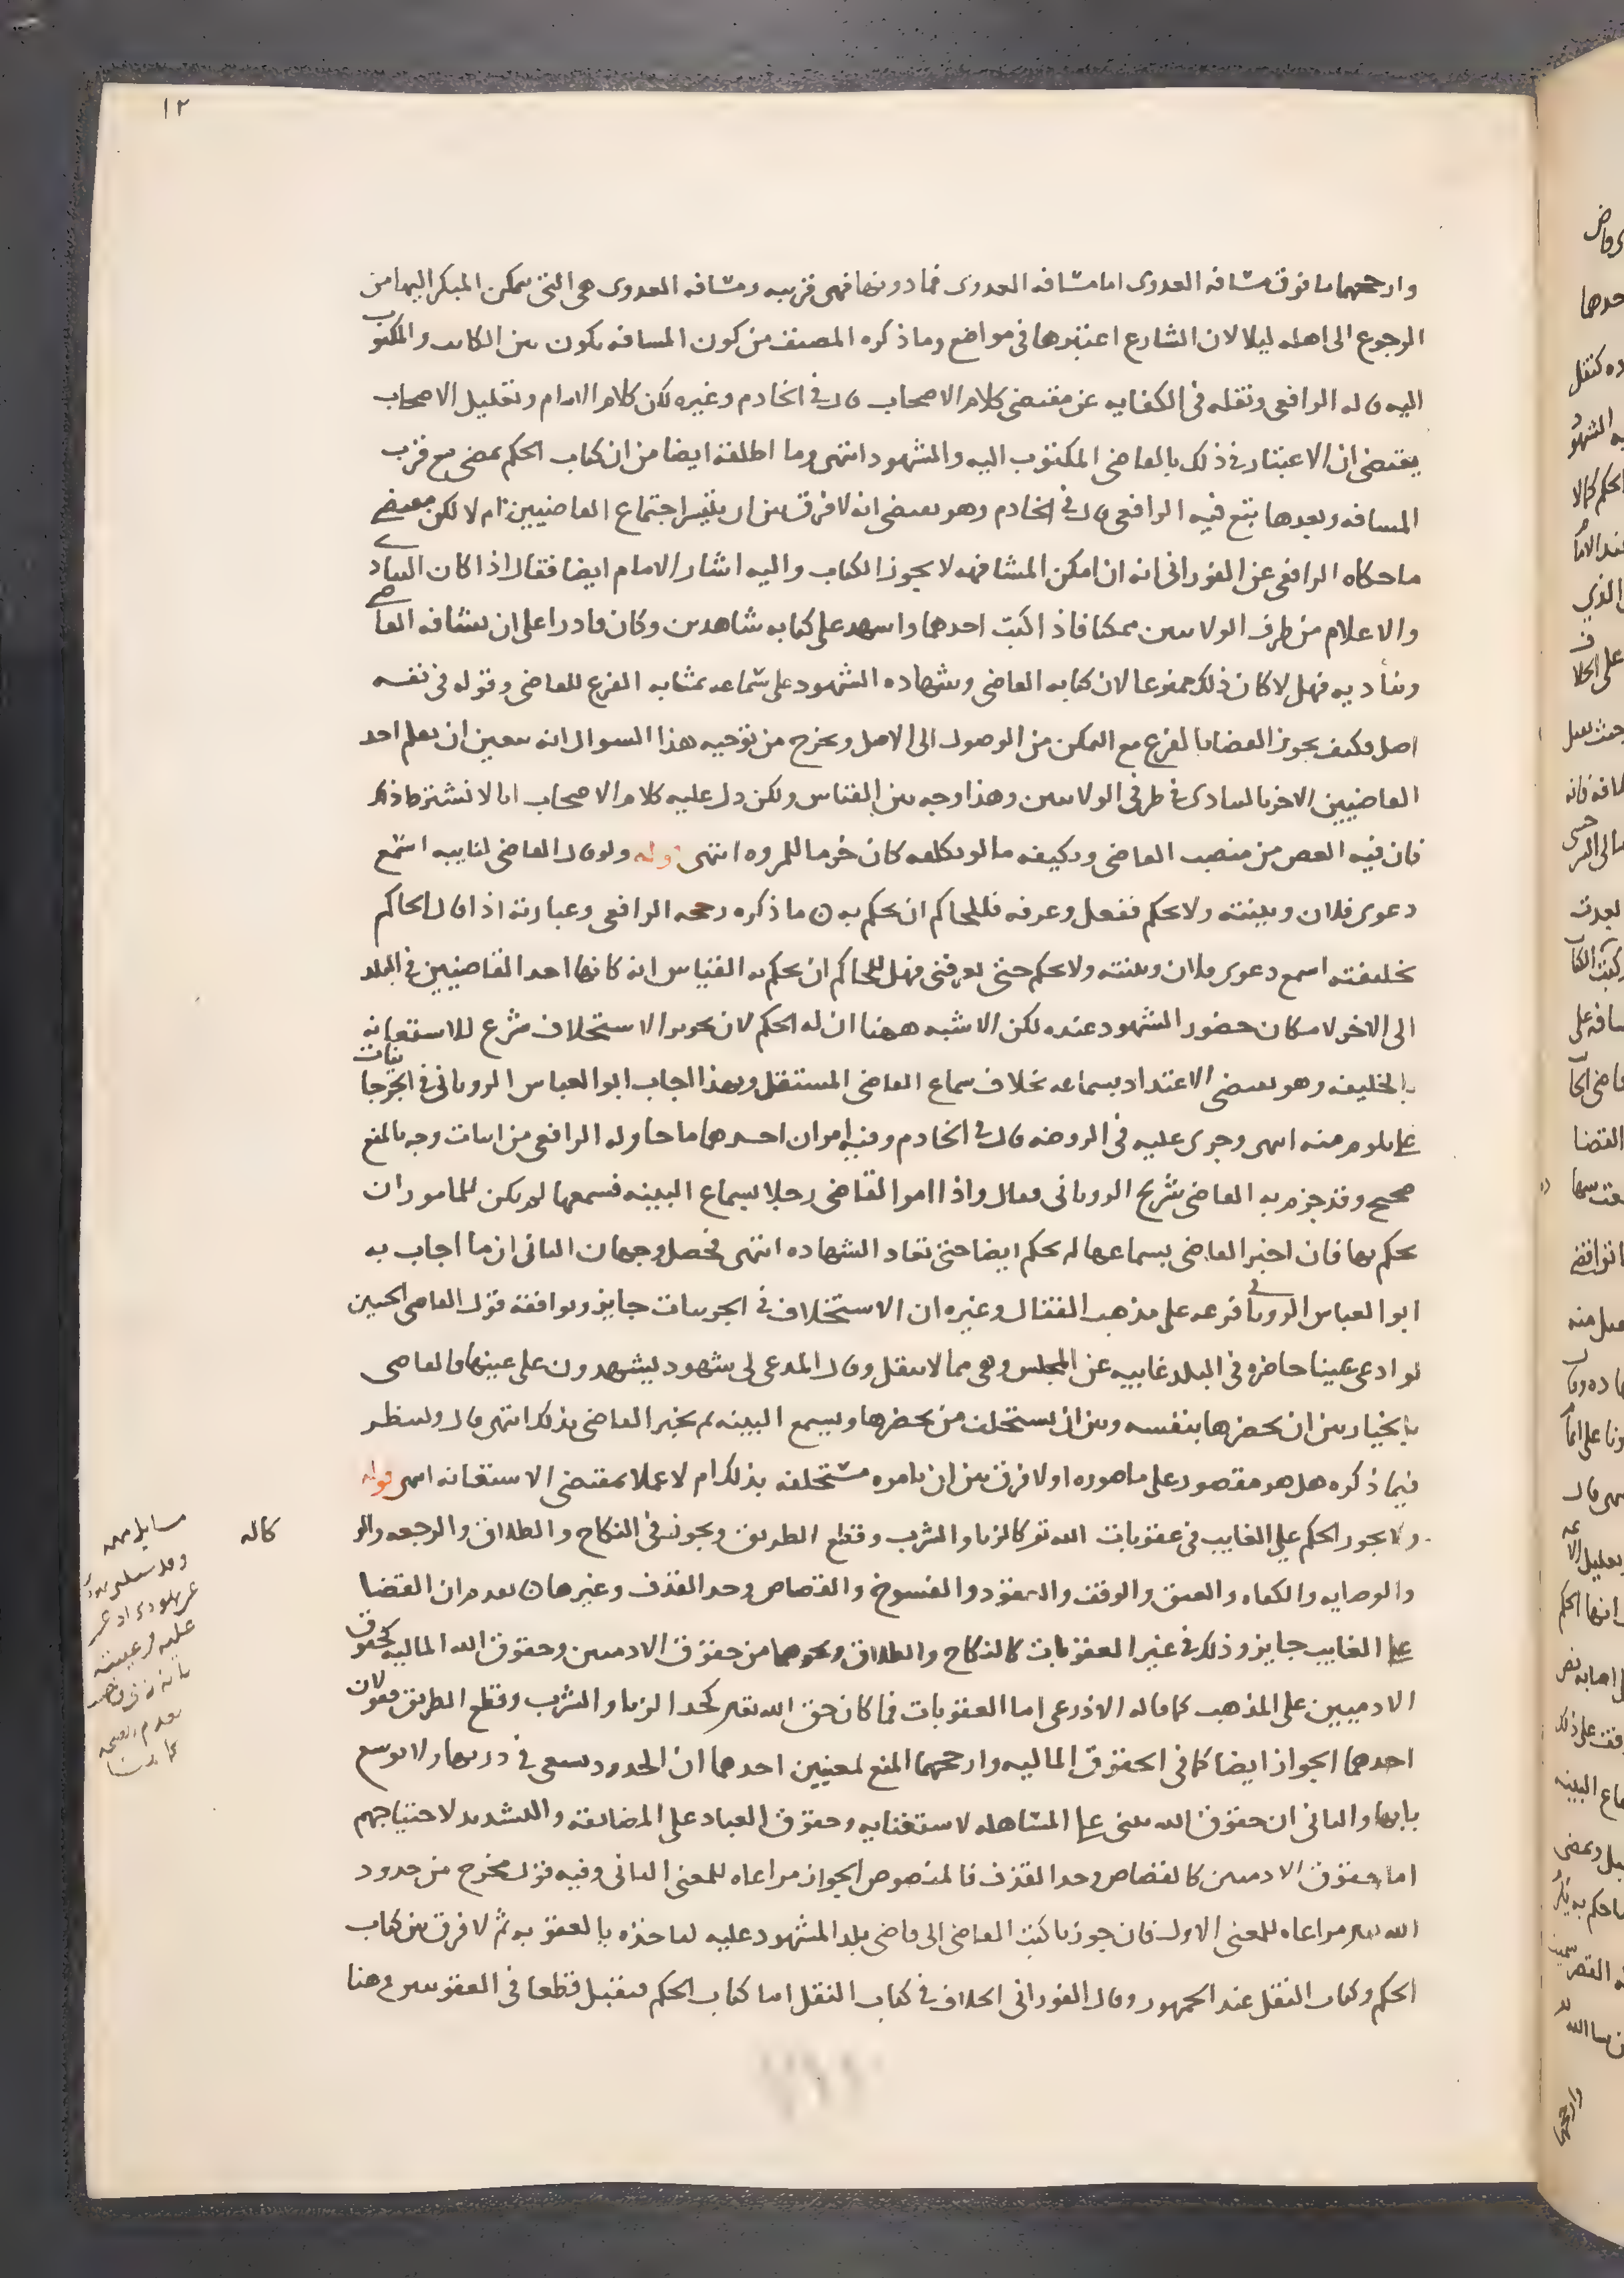 ١٢
وارجحهما ما فوق مسافه العدوى اما مسافه العدوى فما دونها فهى قريبه ومسافه العدوى هى التى يمكن المبكر اليها من
الرجوع الى اهله ليلا لان الشارع اعتبرها فى مواضع وما ذكره المصنف من كون المسافه يكون بين الكاتب والمكتوب
اليه قاله الرافعى ونقله فى الكفايه عن مقتضى كلام الاصحاب قال فى الخادم وغيره لكن كلام الامام وتعليل الاصحاب
يقتضى ان الاعتبار فى ذلك بالقاضى المكتوب اليه والشهود انتهى وما اطلقه ايضا من ان كتاب الحكم يمضى مع قرب
المسافه وبعدها تبع فيه الرافعى قال فى الخادم وهو يقتضى انه لا فرق بين ان يتيسر اجتماع القاضيين ام لا لكن مقتضى
ما حكاه الرافعى عن الفورانى انه ان امكن المشافهه لا يجوز الكتاب واليه اشار الامام ايضا فقال اذا كان التنادى
والاعلام من طرف الولايتين ممكنا فاذا كتب احدهما واشهد على كتابه شاهدين وكان قادرا على ان يشافه القاضى
ويناديه فهل لا كان ذلك ممنوعا لان كتابه القاضى وشهاده الشهود على سماعه بمثابه الفرع للقاضى وقوله فى نفسه
اصل فكيف يجوز القضا بالفرع مع التمكن من الوصول الى الاصل ويخرج من توجيه هذا السوال انه يتعين ان يعلم احد
القاضيين الاخر بالتنادى فى طرفى الولايتين وهذا وجه بين القياس ولكن دل عليه كلام الاصحاب انا لا نشترط ذلك
فان فيه الغض من منصب القاضى وتكليفه ما لو تكلفه كان خرما للمروه انتهى قوله ولو قال القاضى لنايبه اسمع
دعوى فلان وبينته ولا تحكم ففعل وعرفه فللحاكم ان يحكم به ما ذكره رحمه الرافعى وعبارته اذا قال الحاكم
لخليفته اسمع دعوى فلان وبينته ولا تحكم حتى تعرفنى فهل للحاكم ان يحكم به القياس انه كانها احد القاضيين فى البلد
الى الاخر لامكان حضور الشهود عنده لكن الاشبه ههنا ان له الحكم لان تجويز الاستخلاف شرع للاستعانه
بالخليفه وهو يقتضى الاعتداد بسماعه بخلاف سماع القاضى المستقل وبهذا اجاب ابو العباس الرويانى فى الجرجانيات
على تلوم منه انتهى وجرى عليه فى الروضه قال فى الخادم وفيه امران احدهما ما حاوله الرافعى من اثبات وجه بالمنع
صحيح وقد جزم به القاضى شريح الرويانى فقال واذا امر القاضى رجلا بسماع البينه فسمعها لم يكن للمامور ان
يحكم بها فان اخبر القاضى بسماعها لم يحكم ايضا حتى تعاد الشهاده انتهى فحصل وجهان الثانى ان ما اجاب به
ابو العباس الرويانى فرعه على مذهب القفال وغيره ان الاستخلاف فى الجزييات جايز ويوافقه قول القاضى الحسين
لو ادعى عينا حاضره فى البلد غايبه عن المجلس وهى مما لا ينقل وقال المدعى لى شهود يشهدون على عينها فالقاضى
بالخيار بين ان يحضرها بنفسه وبين ان يستخلف من يحضرها ويسمع البينه ثم يخبر القاضى بذلك انتهى قال ولينظر
فيما ذكره هل هو مقصور على ما صوره او لا فرق بين ان يامره مستخلفه بذلك ام لا عملا بمقتضى الاستعانه انتهى قوله
ولا يجوز الحكم على الغايب فى عقوبات الله تع كالزنا والشرب وقطع الطريق ويجوز فى النكاح والطلاق والرجعه والو
كاله
والوصايه والكفاله والعتق والوقف والعقود والفسوخ والقصاص وحد القذف وغيرها تقدم ان القضا
على الغايب جايز وذلك فى غير العقوبات كالنكاح والطلاق ونحوهما من حقوق الادميين وحقوق الله الماليه كحقوق
الادميين على المذهب كما قاله الاذرعى اما العقوبات فما كان حق الله تعالى كحد الزنا والشرب وقطع الطريق فقولان
احدهما الجواز ايضا كما فى الحقوق الماليه وارجحهما المنع لمعنيين احدهما ان الحدود يسعى فى درئها ولا يوسع
بابها والثانى ان حقوق الله تبنى على المساهله لاستغنايه وحقوق العباد على المضايقه والتشديد لاحتياجهم
اما حقوق الادميين كالقصاص وحد القذف فالمنصوص الجواز مراعاه للمعنى الثانى وفيه قول مخرج من حدود
الله تعالى مراعاه للمعنى الاول فان جوزنا كتب القاضى الى قاضى بلد المشهود عليه لياخذه بالعقوبه ثم لا فرق بين كتاب
الحكم وكتاب النقل عند الجمهور وقال الفورانى الخلاف فى كتاب النقل اما كتاب الحكم فيقبل قطعا فى العقوبتين وهنا